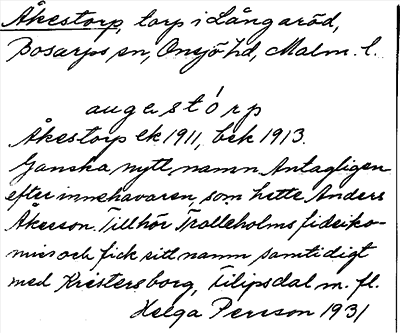 Åkestorp, torp i Långaröd,
Bosarps sn, Onsjö hd, Malm. l.
augastórp
Åkestorp ek 1911, bek 1913.
Ganska nytt namn Antagligen
efter innehavaren, som hette Anders
Åkeson. Tillhör Trolleholms fideiko-
miss och fick sitt namn samtidigt
med Kristersborg, Filipsdal m. fl.
Helga Persson 1931